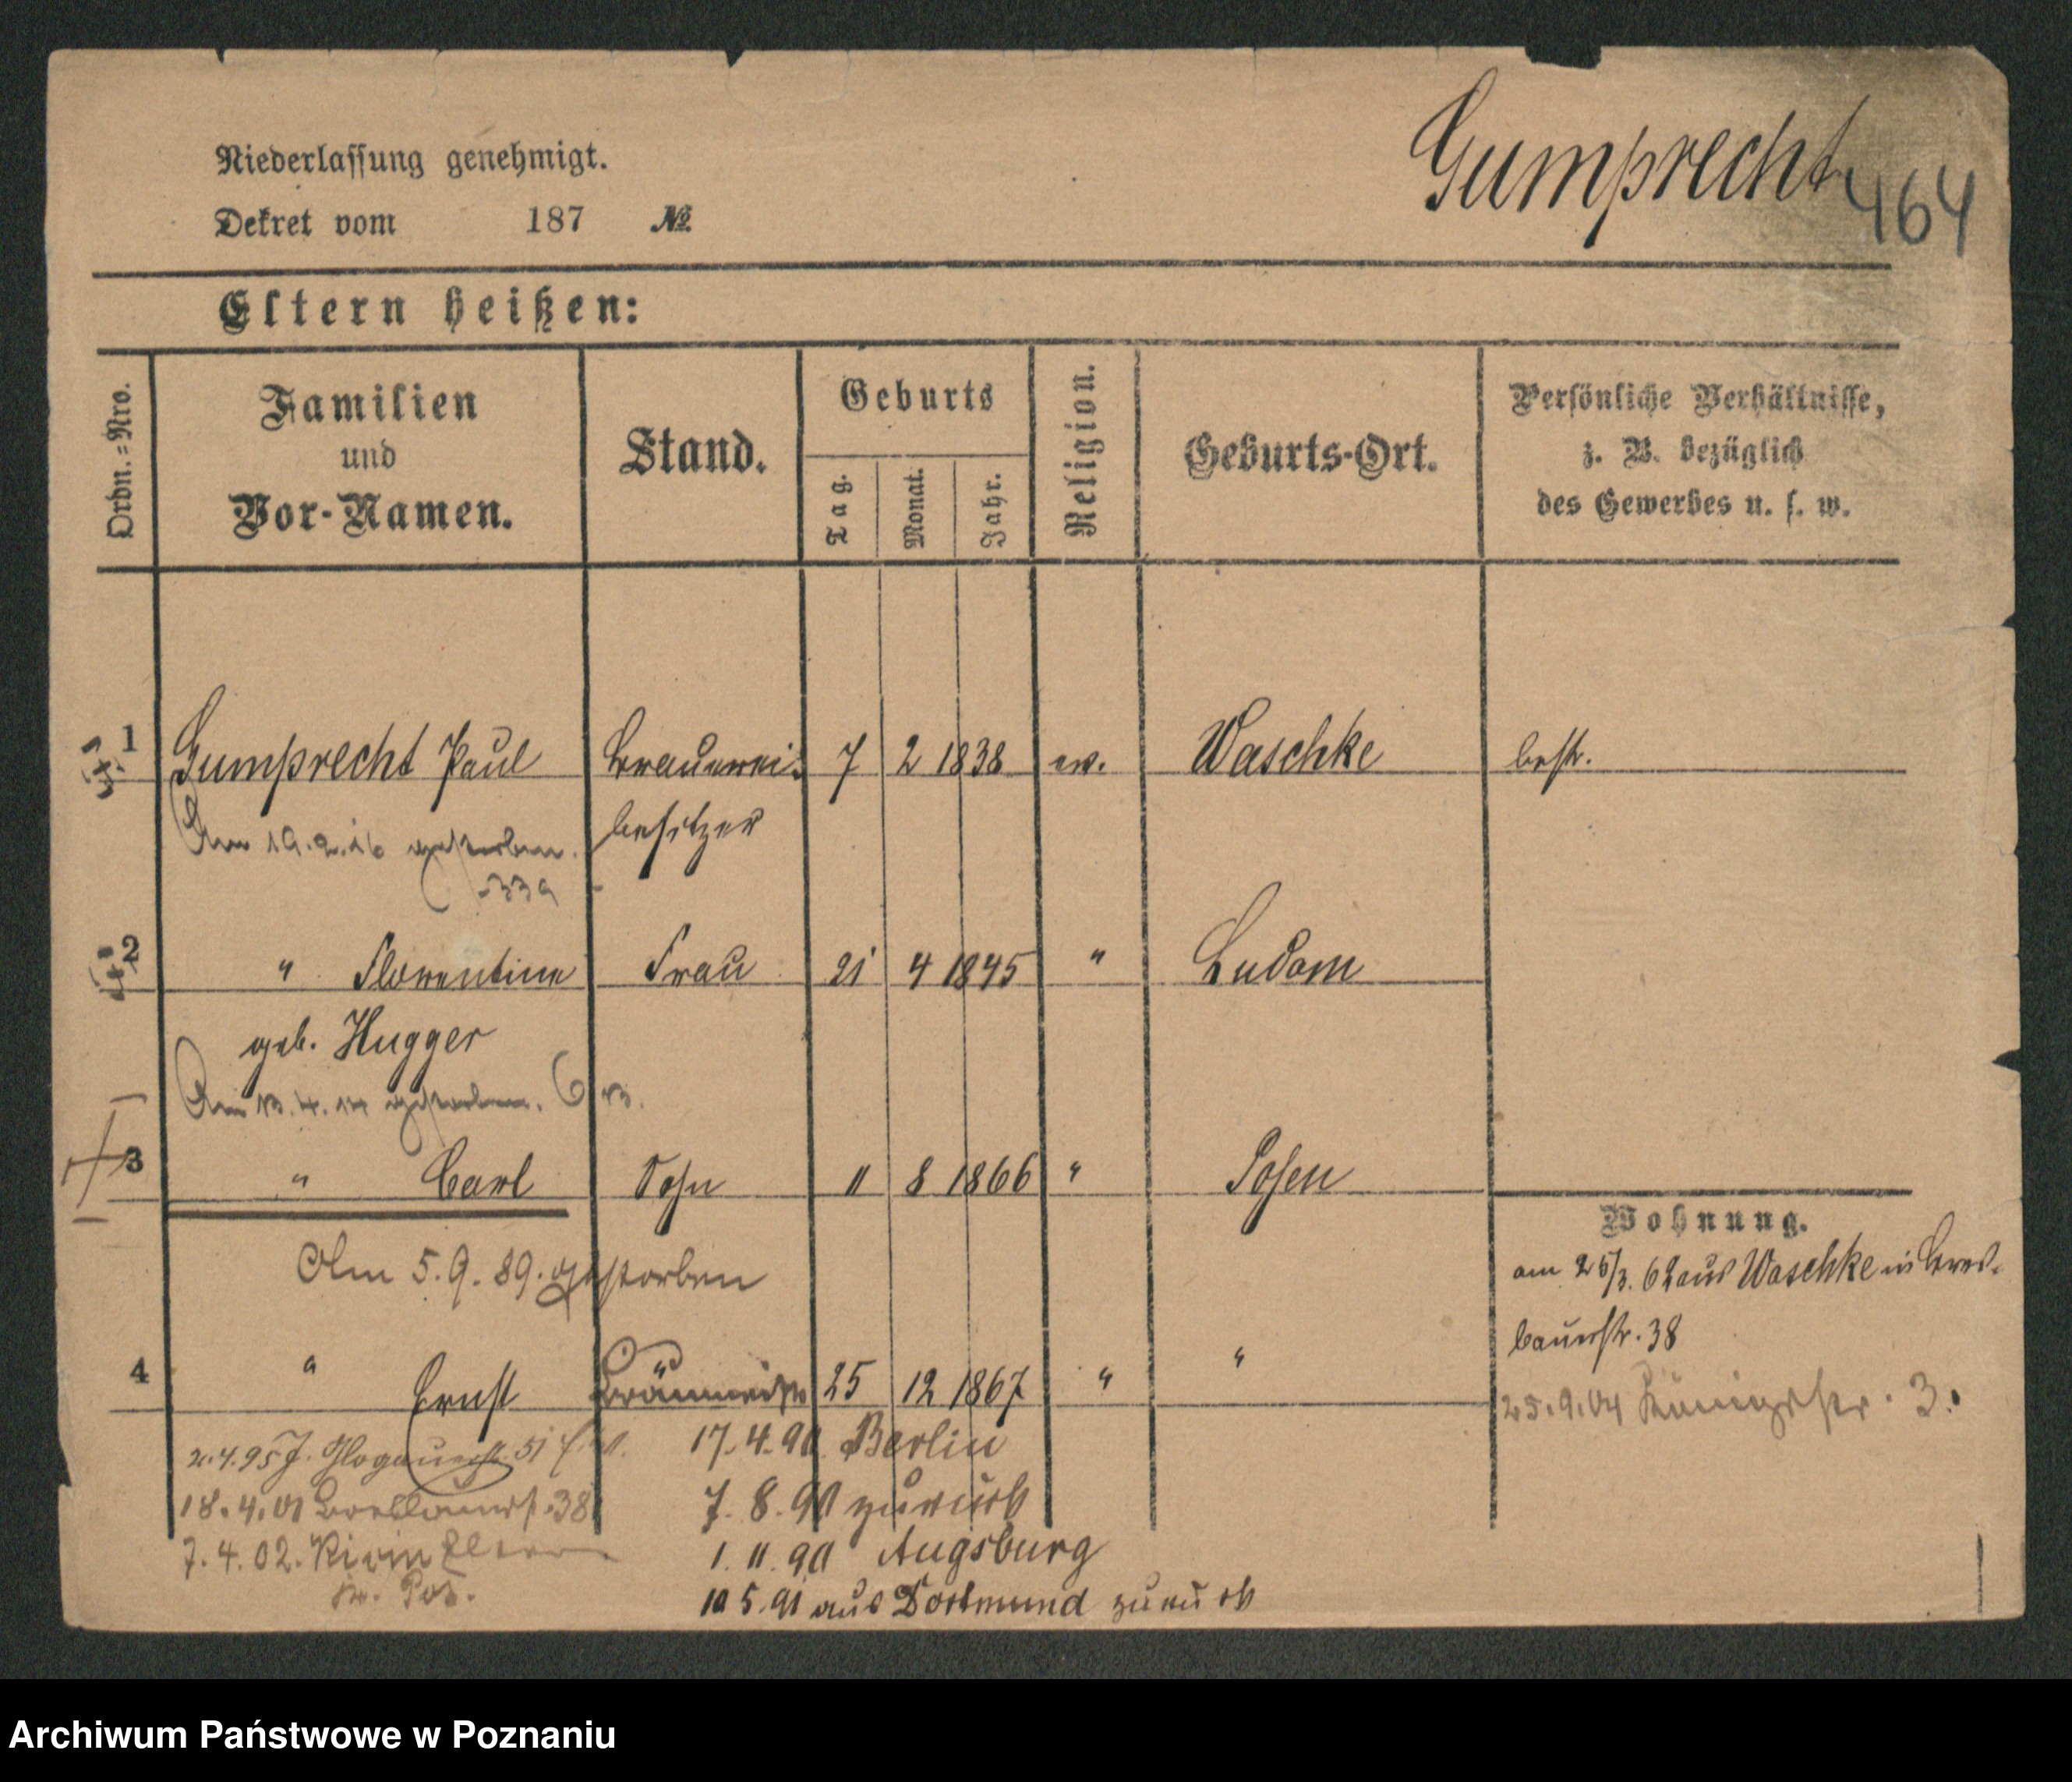 Niederlassung genehmigt.
Gumprecht
464
Dekret vom 187 №
Eltern heißen:
Ordn.=Nro.
Familien
und
Vor-Namen.
Stand.
Geburts
Tag.
Monat.
Jahr.
Religion.
Geburts-Ort.
Persönliche Verhältnisse,
z. B. bezüglich
des Gewerbes u. s. w.
1 Gumprecht Paul Brauerei- 7 2 1838 ev. Waschke bestr.
besitzer
Am 19.2.16 gestorben.
339
2 " Florentine Frau 21 4 1845 " Ludom
geb. Hugger
Am 13.4.14 gestorben.
3 " Carl Sohn 11 8 1866 " Posen
Am 5.9.89. gestorben
Wohnung.
am 25/3. 62 aus Waschke in Bres-
lauerstr. 38
4 " Ernst 25 12 1867 " "
25.9.04 Königstr. 3.
2.4.95 J. Glogauerstr. 51
17.4.90 Berlin
18.4.01 Breslauerstr. 38
7.8.90 zurück
7.4.02.
1.11.90 Augsburg
Kr. Pos.
10 5.91 aus Dortmund zurück
Archiwum Państwowe w Poznaniu